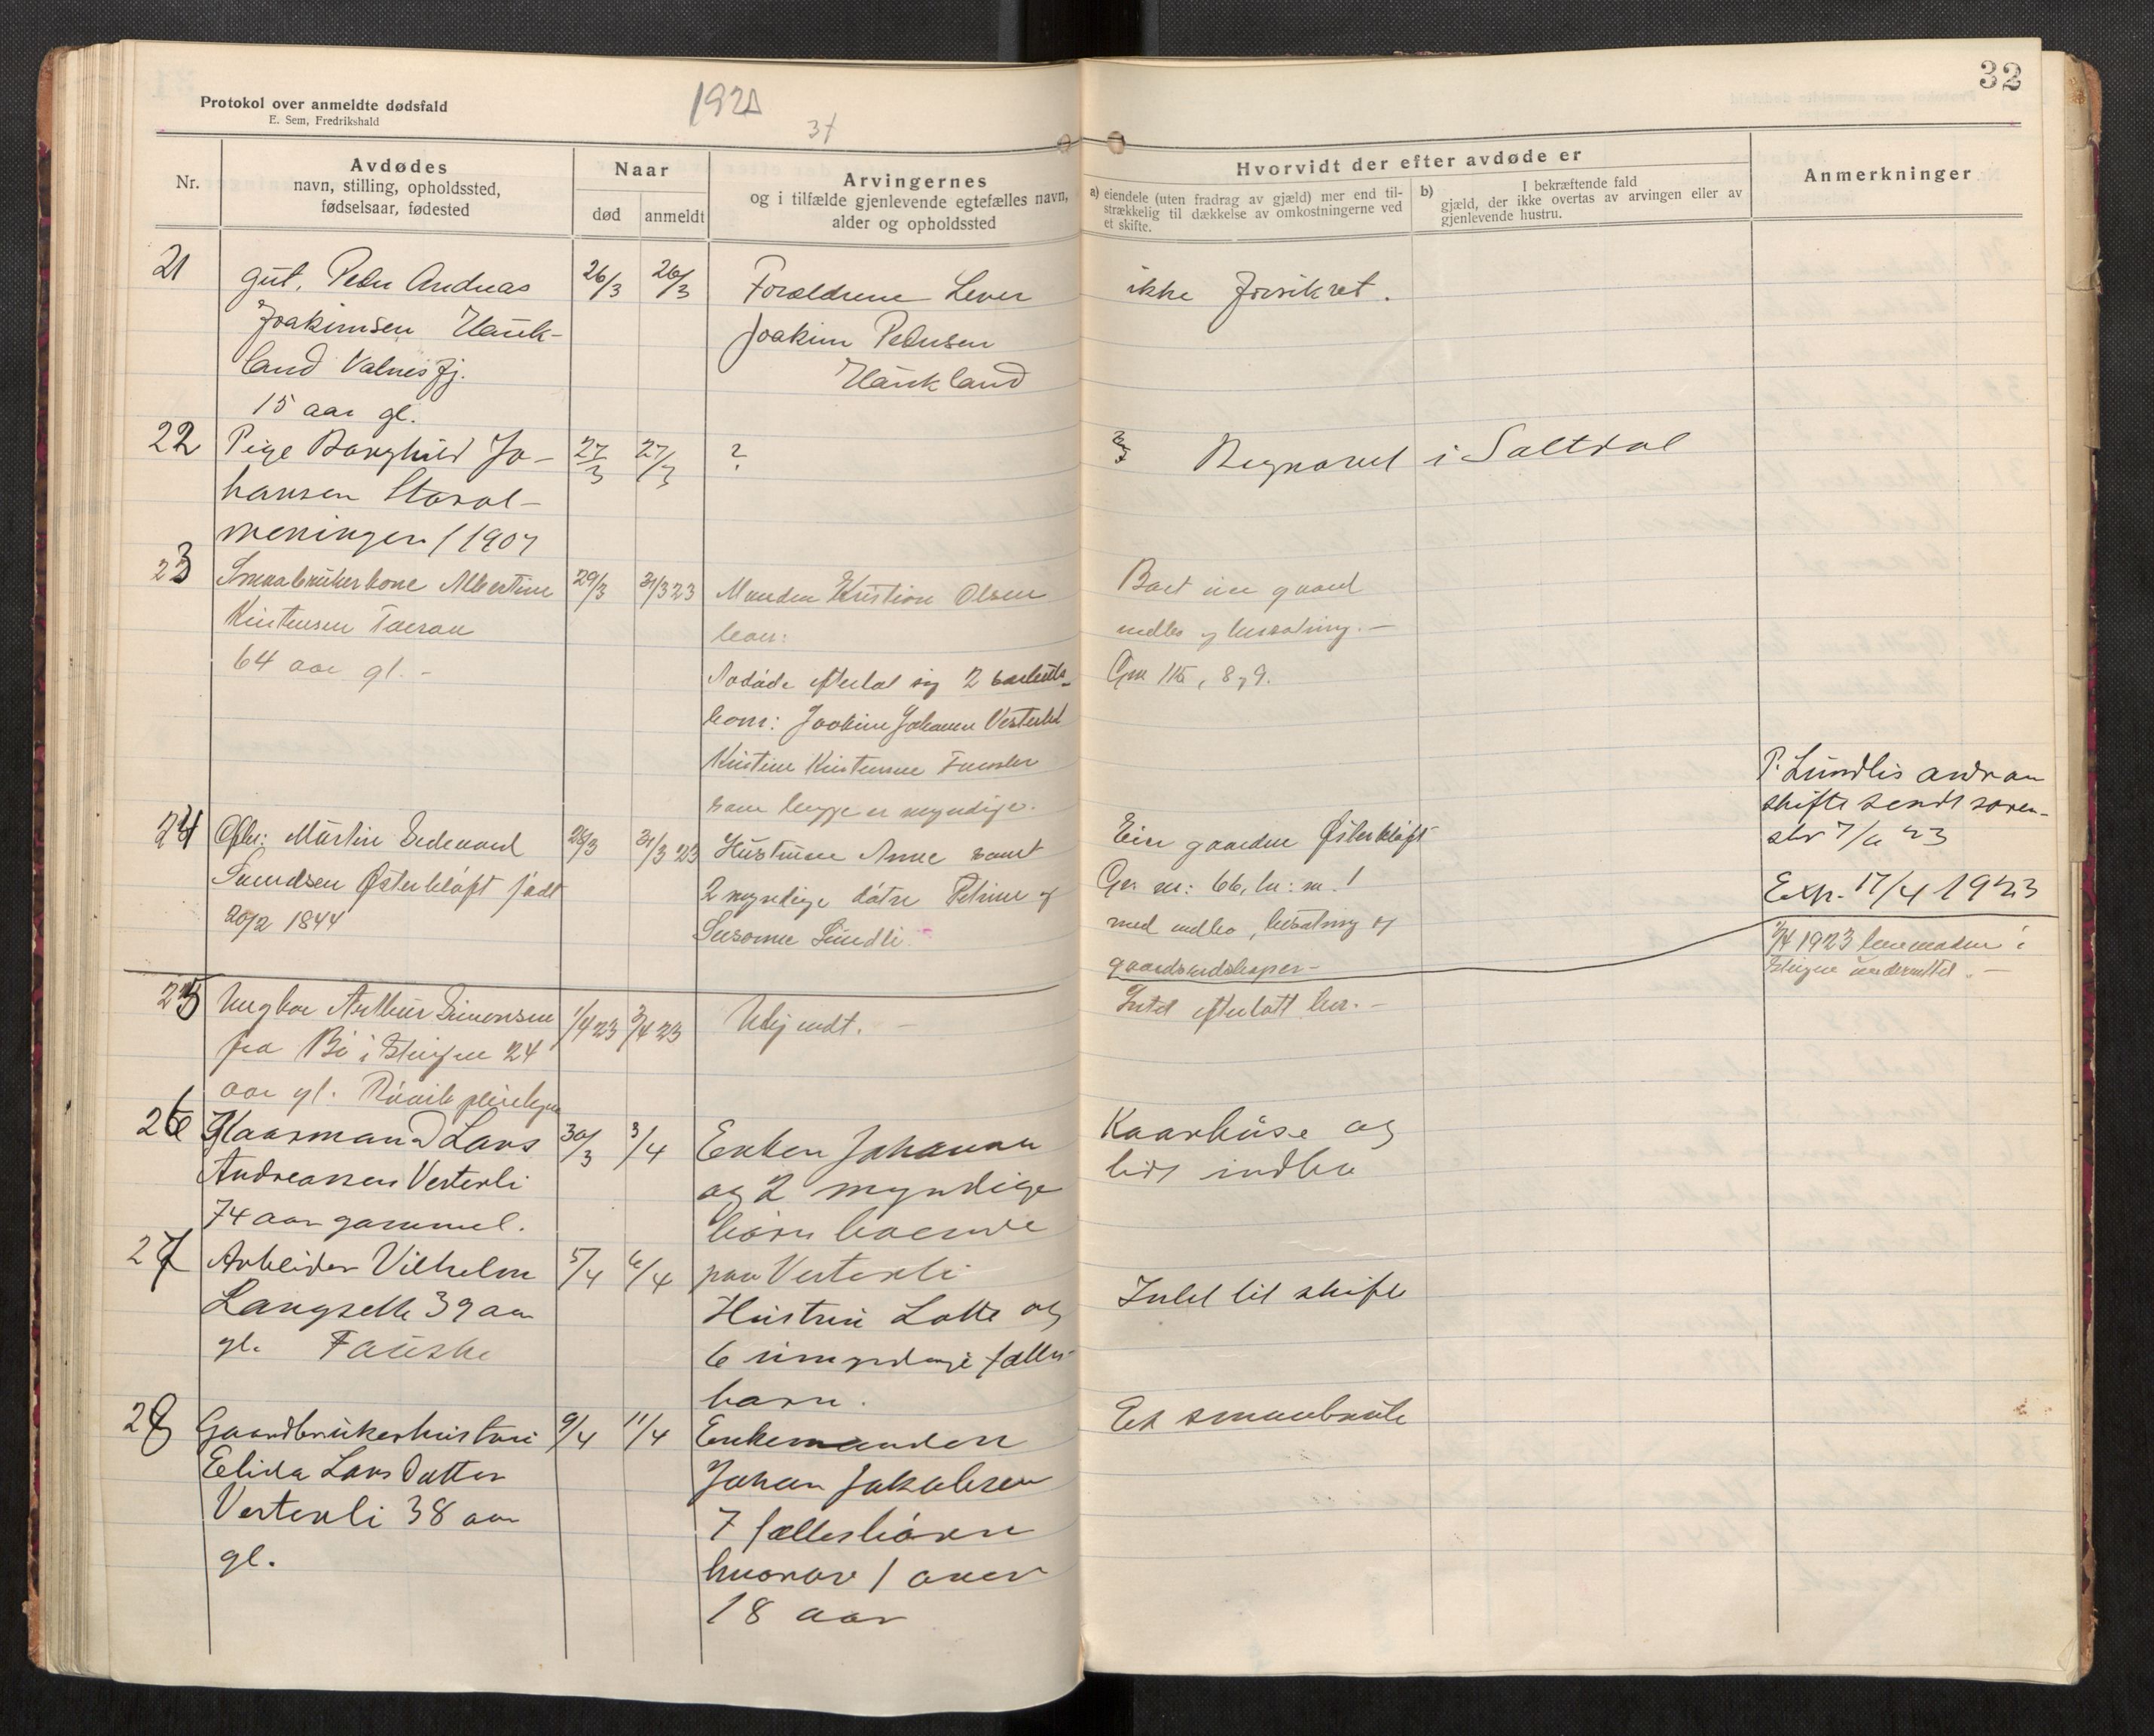 Protokol over anmeldte dødsfald
E. Sem, Fredrikshald
192
31
32
Nr.
Avdødes
navn, stilling, opholdssted,
fødselsaar, fødested
Naar
død
anmeldt
Arvingernes
og i tilfælde gjenlevende egtefælles navn,
alder og opholdssted
Hvorvidt der efter avdøde er
a) eiendele (uten fradrag av gjæld) mer end til-
strækkelig til dækkelse av omkostningerne ved
et skifte.
b) I bekræftende fald
gjæld, der ikke overtas av arvingen eller av
gjenlevende hustru.
Anmerkninger
21
gut. Peder Andreas
Joakimsen Hauk-
land Valnesfj.
15 aar gl.
26/3
26/3
Foreldrene Lever
Joakim Pedersen
Haukland
ikke forsikret.
22
Pige Borghild Jo-
hansen Storal-
meningen / 1907
27/3
27/3
?
?
Begravet i Saltdal
23
Smaabrukerkone Albertine
Kristensen
64 aar gl. -
29/3
31/3 23
Manden Kristian Olsen
Avdøde efterlot sig 2
Joakim Johansen
Kristine Kristensen
som begge er myndige.
gaard
indbo og besætning. -
Gn 115, 8, 9.
24
Martin Edevard
Svendsen Østerkløft født
20/2 1844
28/3
31/3 23
Hustruen Anne samt
2 myndige døtre Petrine og
Susanne Lundli
Eier gaarden Østerkløft
Gr. nr: 66, br: nr. 1
med indbo, besætning og
gaardsredskaper -
P. Lundlis andr om
skifte sendt soren-
skr 7/4 23
Exp. 17/4 1923
25
Ungkar Arthur Simonsen
fra Bø i Steigen 24
aar gl. Røvik pleiehjem
1/4 23
3/4 23
Ubekjendt. -
Intet efterlatt her. -
3/4 1923 lensmanden i
Steigen underrettet. -
26
Kaarmand Lars
Andreassen Vesterli
74 aar gammel.
30/3
3/4
Enken Johanna
og 2 myndige
børn boende
paa Vesterli
Kaarhuse og
lidt indbo
27
Arbeider Vilhelm
Langseth 39 aar
gl. Fauske
5/4
6/4
Hustru Lotte og
6 umyndige fælles-
barn.
Intet til skifte
28
Gaardbrukerhustru
Elida Lars Datter
Vesterli 38 aar
gl.
9/4
11/4
Enkemanden
Johan Jakobsen
7 fællesbørn
hvorav 1 over
18 aar
Et smaabruk